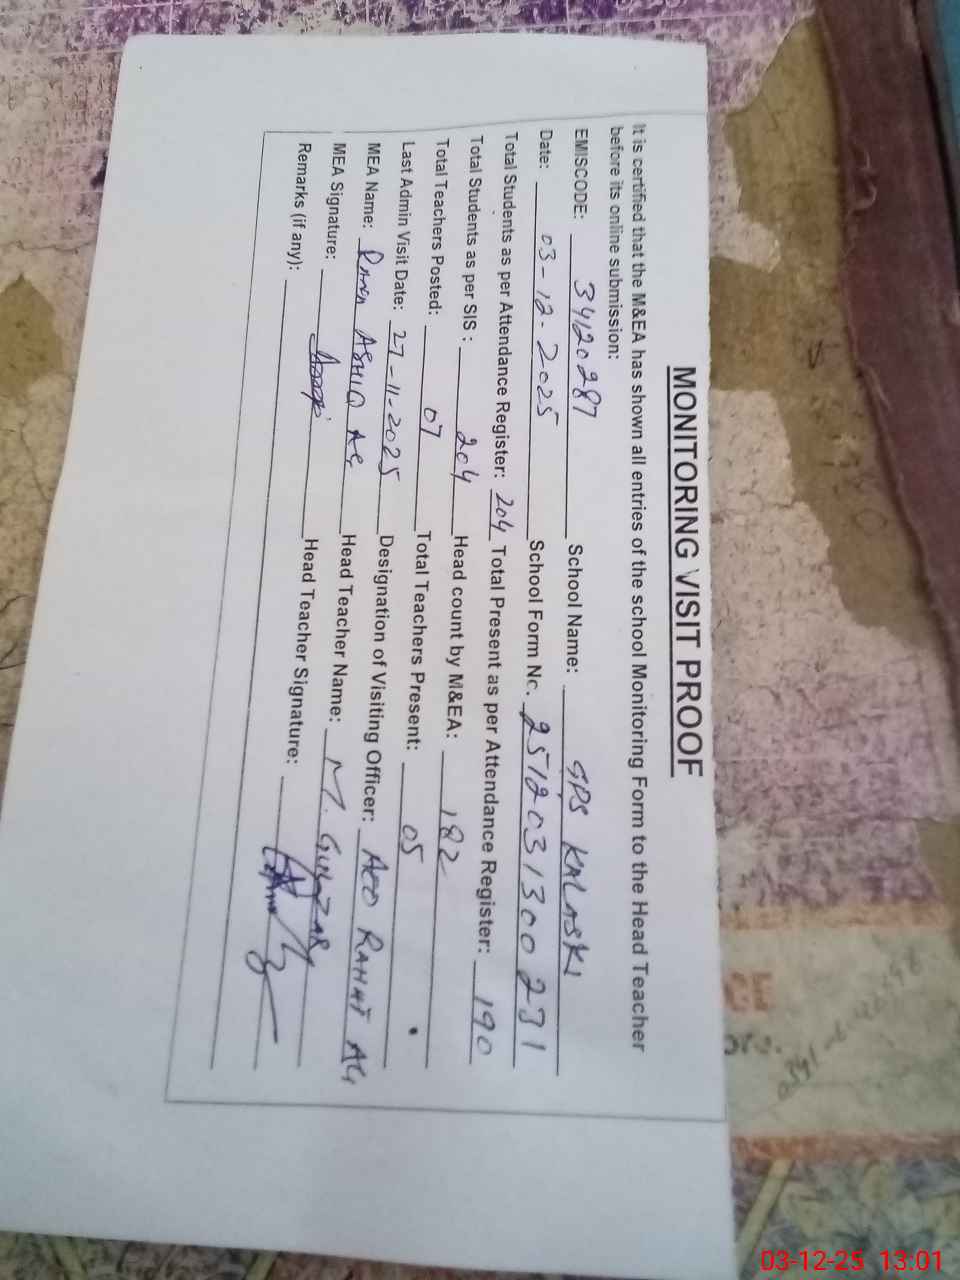 MONITORING VISIT PROOF
It is certified that the M&EA has shown all entries of the school Monitoring Form to the Head Teacher
before its online submission:
EMISCODE: 34120287 School Name: GPS KALASKI
Date: 03-12-2025 School Form No. 2512031300231
Total Students as per Attendance Register: 204 Total Present as per Attendance Register: 190
Total Students as per SIS: 204 Head count by M&EA: 182
Total Teachers Posted: 07 Total Teachers Present: 05
Last Admin Visit Date: 27-11-2025 Designation of Visiting Officer: AEO RAHAT
MEA Name: RANA ASHIQ Head Teacher Name: M. GULZAR
MEA Signature: Head Teacher Signature:
Remarks (if any):
03-12-25 13:01